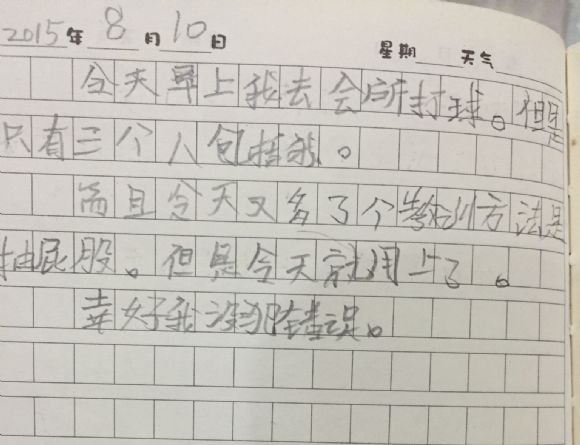 2015年8月10日 星期 天气
今天早上我去会所打球。但是
只有三个人包括我。
而且今天又多了个惩训方法是
抽屁股。但是今天就用上了。
幸好我没犯错误。